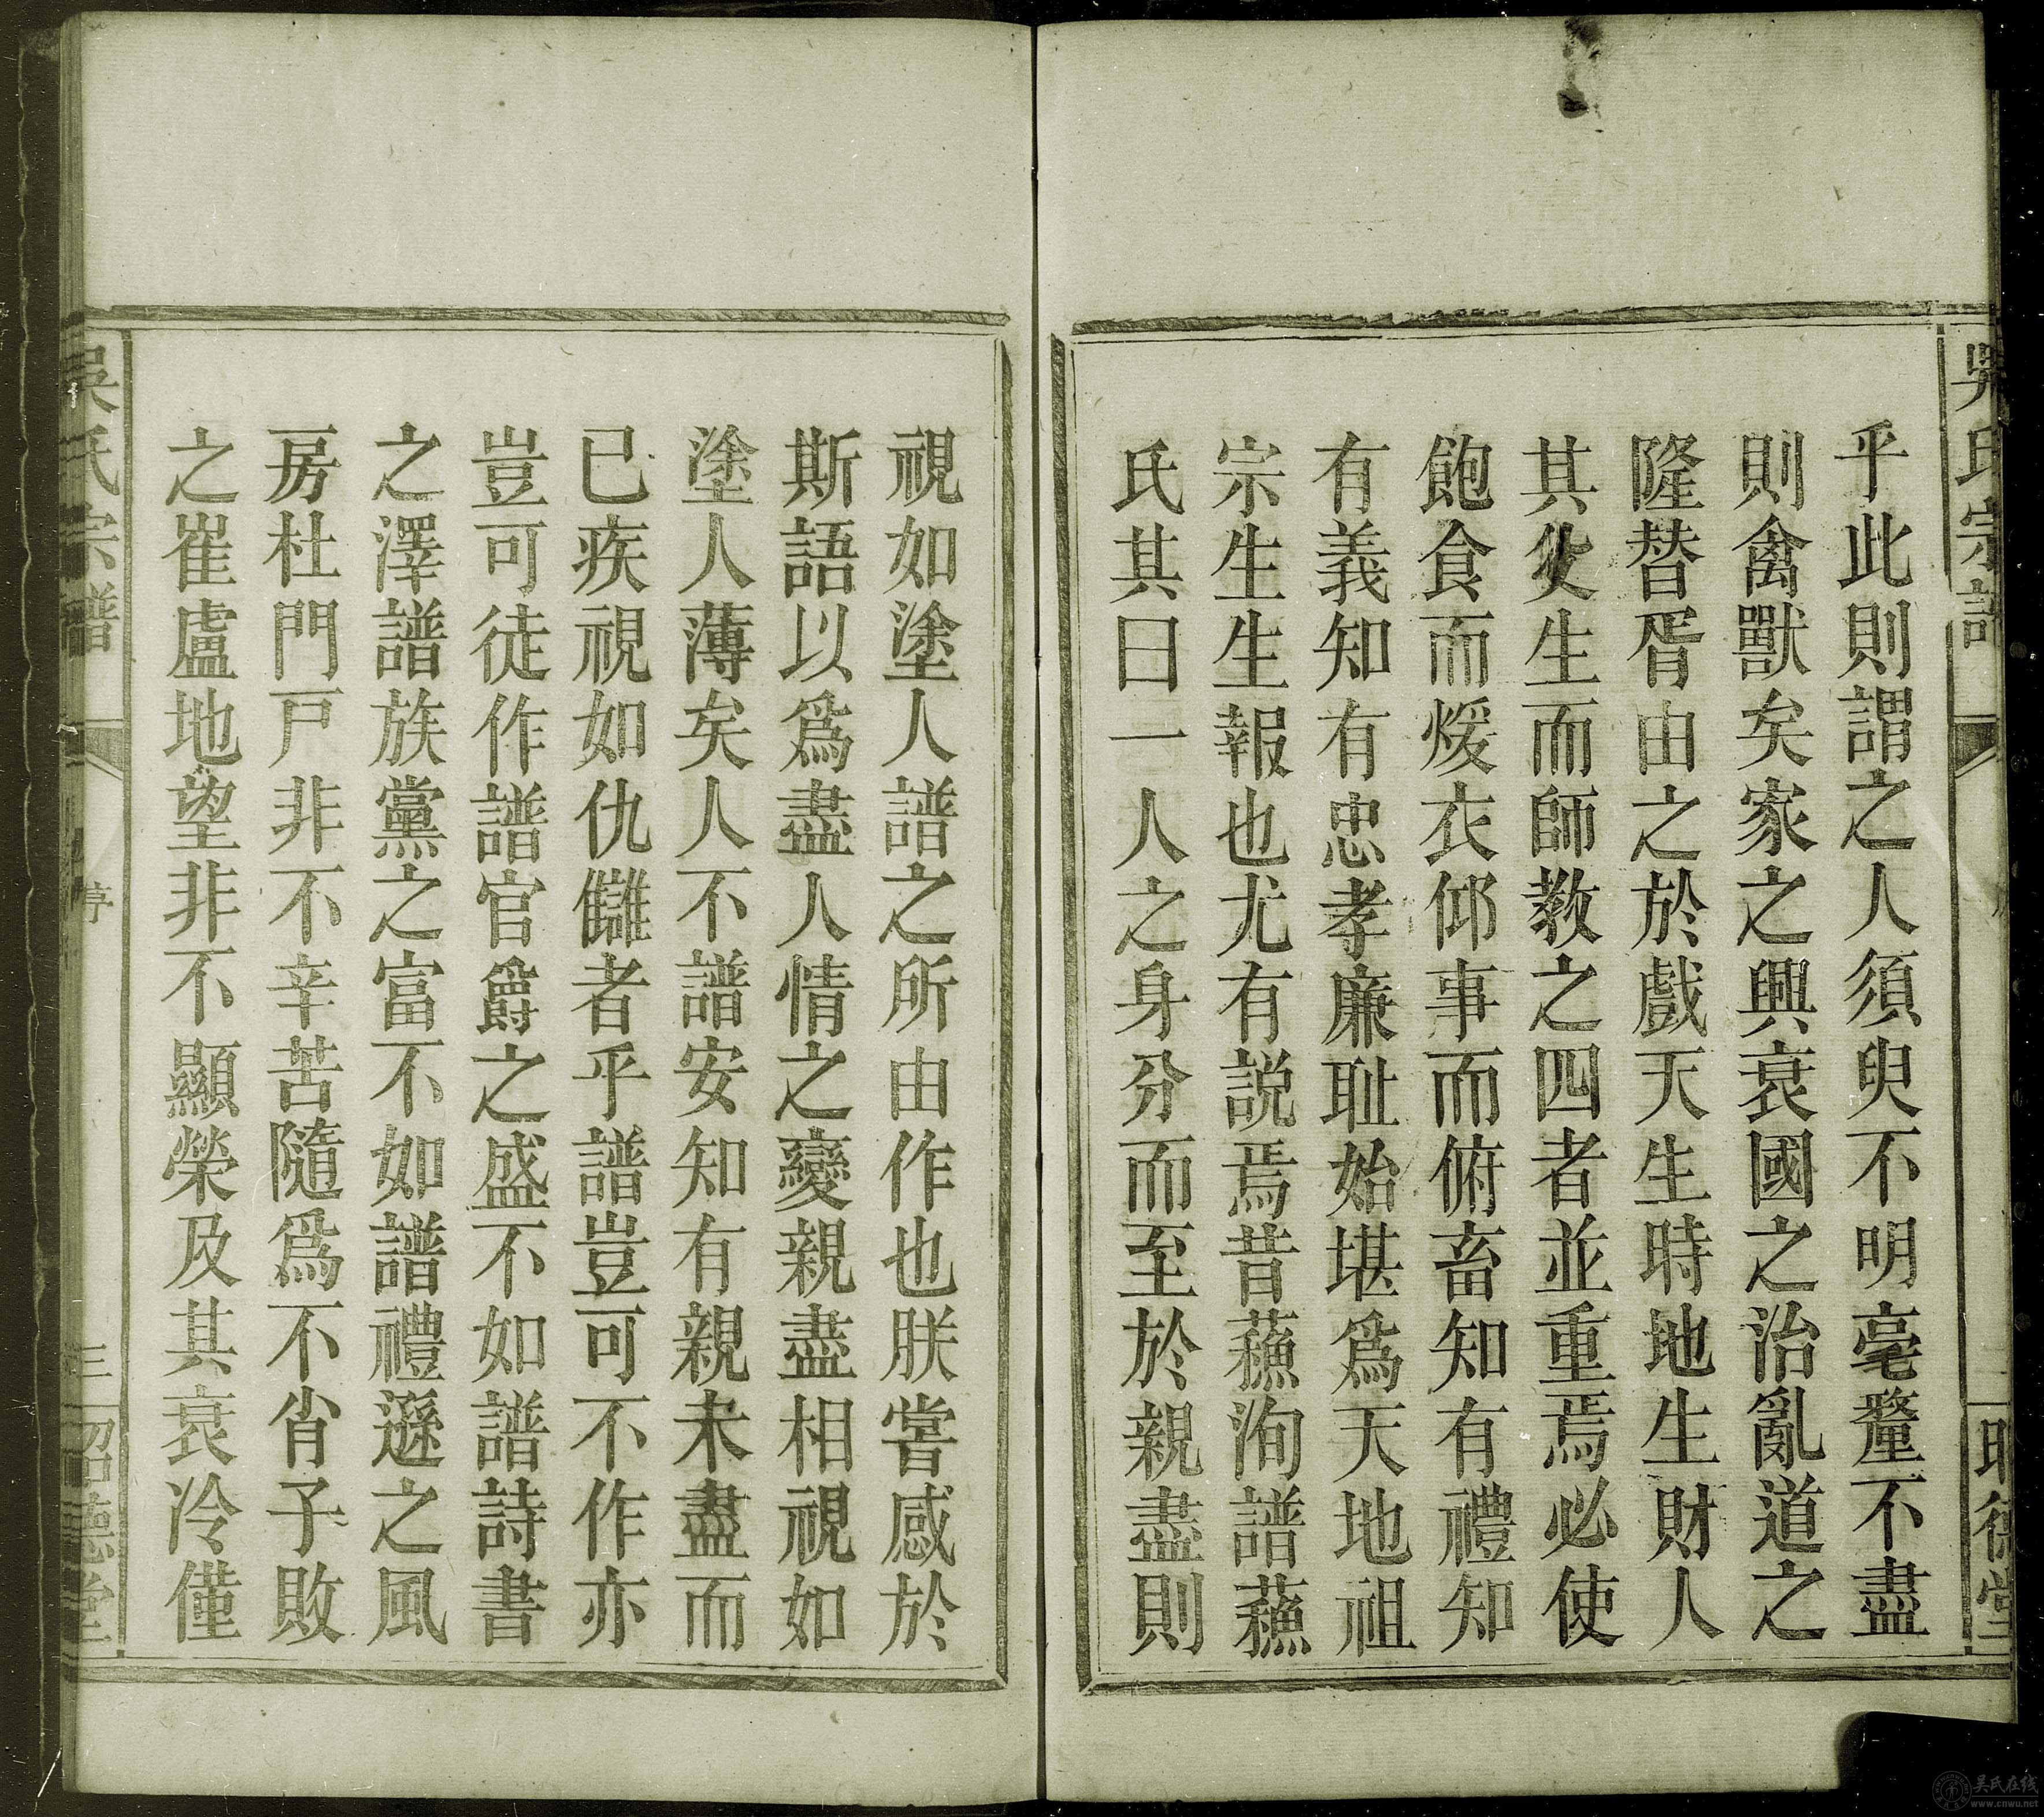 吳氏宗譜
昭德堂
乎此則謂之人須臾不明毫釐不盡
則禽獸矣家之興衰國之治亂道之
隆替胥由之於戲天生時地生財人
其父生而師教之四者並重焉必使
飽食而煖衣仰事而俯畜知有禮知
有義知有忠孝廉耻始堪爲天地祖
宗生生報也尤有説焉昔蘓洵譜蘓
氏其曰一人之身分而至於親盡則
視如塗人譜之所由作也朕嘗感於
斯語以爲盡人情之變親盡相視如
塗人薄矣人不譜安知有親未盡而
已疾視如仇讎者乎譜豈可不作亦
豈可徒作譜官爵之盛不如譜詩書
之澤譜族黨之富不如譜禮遜之風
房杜門戸非不辛苦隨爲不肖子敗
之崔盧地望非不顯榮及其衰冷僅
吳氏宗譜
序
三
昭德堂
吴氏在线
www.cnwu.net